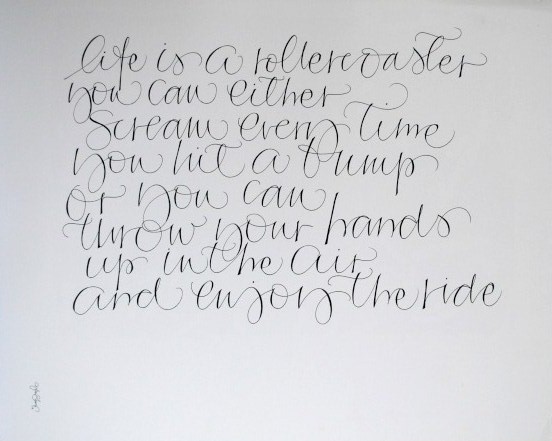 life is a rollercoaster
you can either
scream every time
you hit a bump
or you can
throw your hands
up in the air
and enjoy the ride